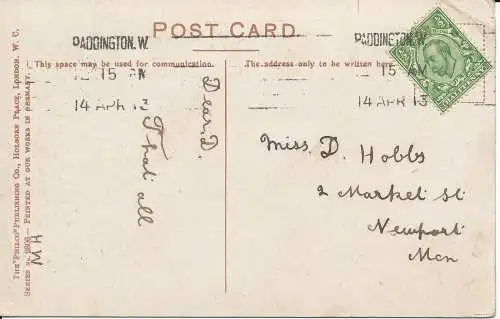 POST CARD.
PADDINGTON. W.
PADDINGTON. W.
This space may be used for communication.
The address only to be written here.
15
14 APR 13
15
14 APR 13
Dear D.
That all
H W
Miss D. Hobbs
2 Market St
Newport
Mon
The "Philco" Publishing Co., Holborn Place, London, W. C.
Printed at our works in Germany.